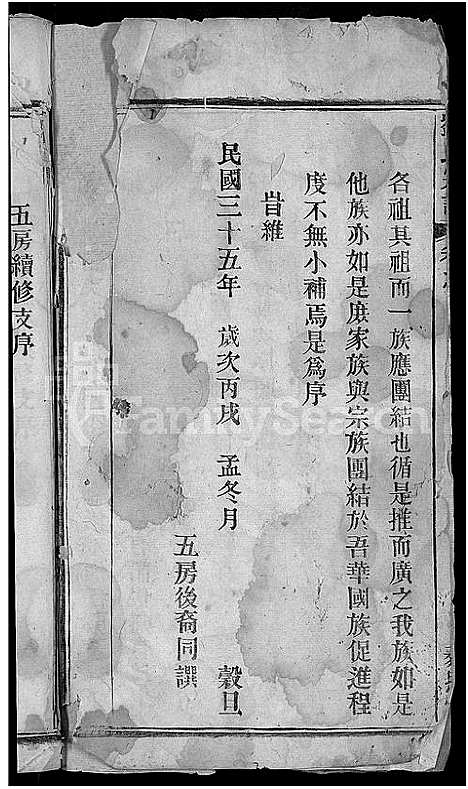 各祖其祖而一族應團結也循是推而廣之我族如是
他族亦如是庶家族與宗族團結於吾華國族促進程
度不無小補焉是爲序
旹維
民國三十五年 歲次丙戌 孟冬月 穀旦
五房後裔同譔
五房續修支序
FamilySearch